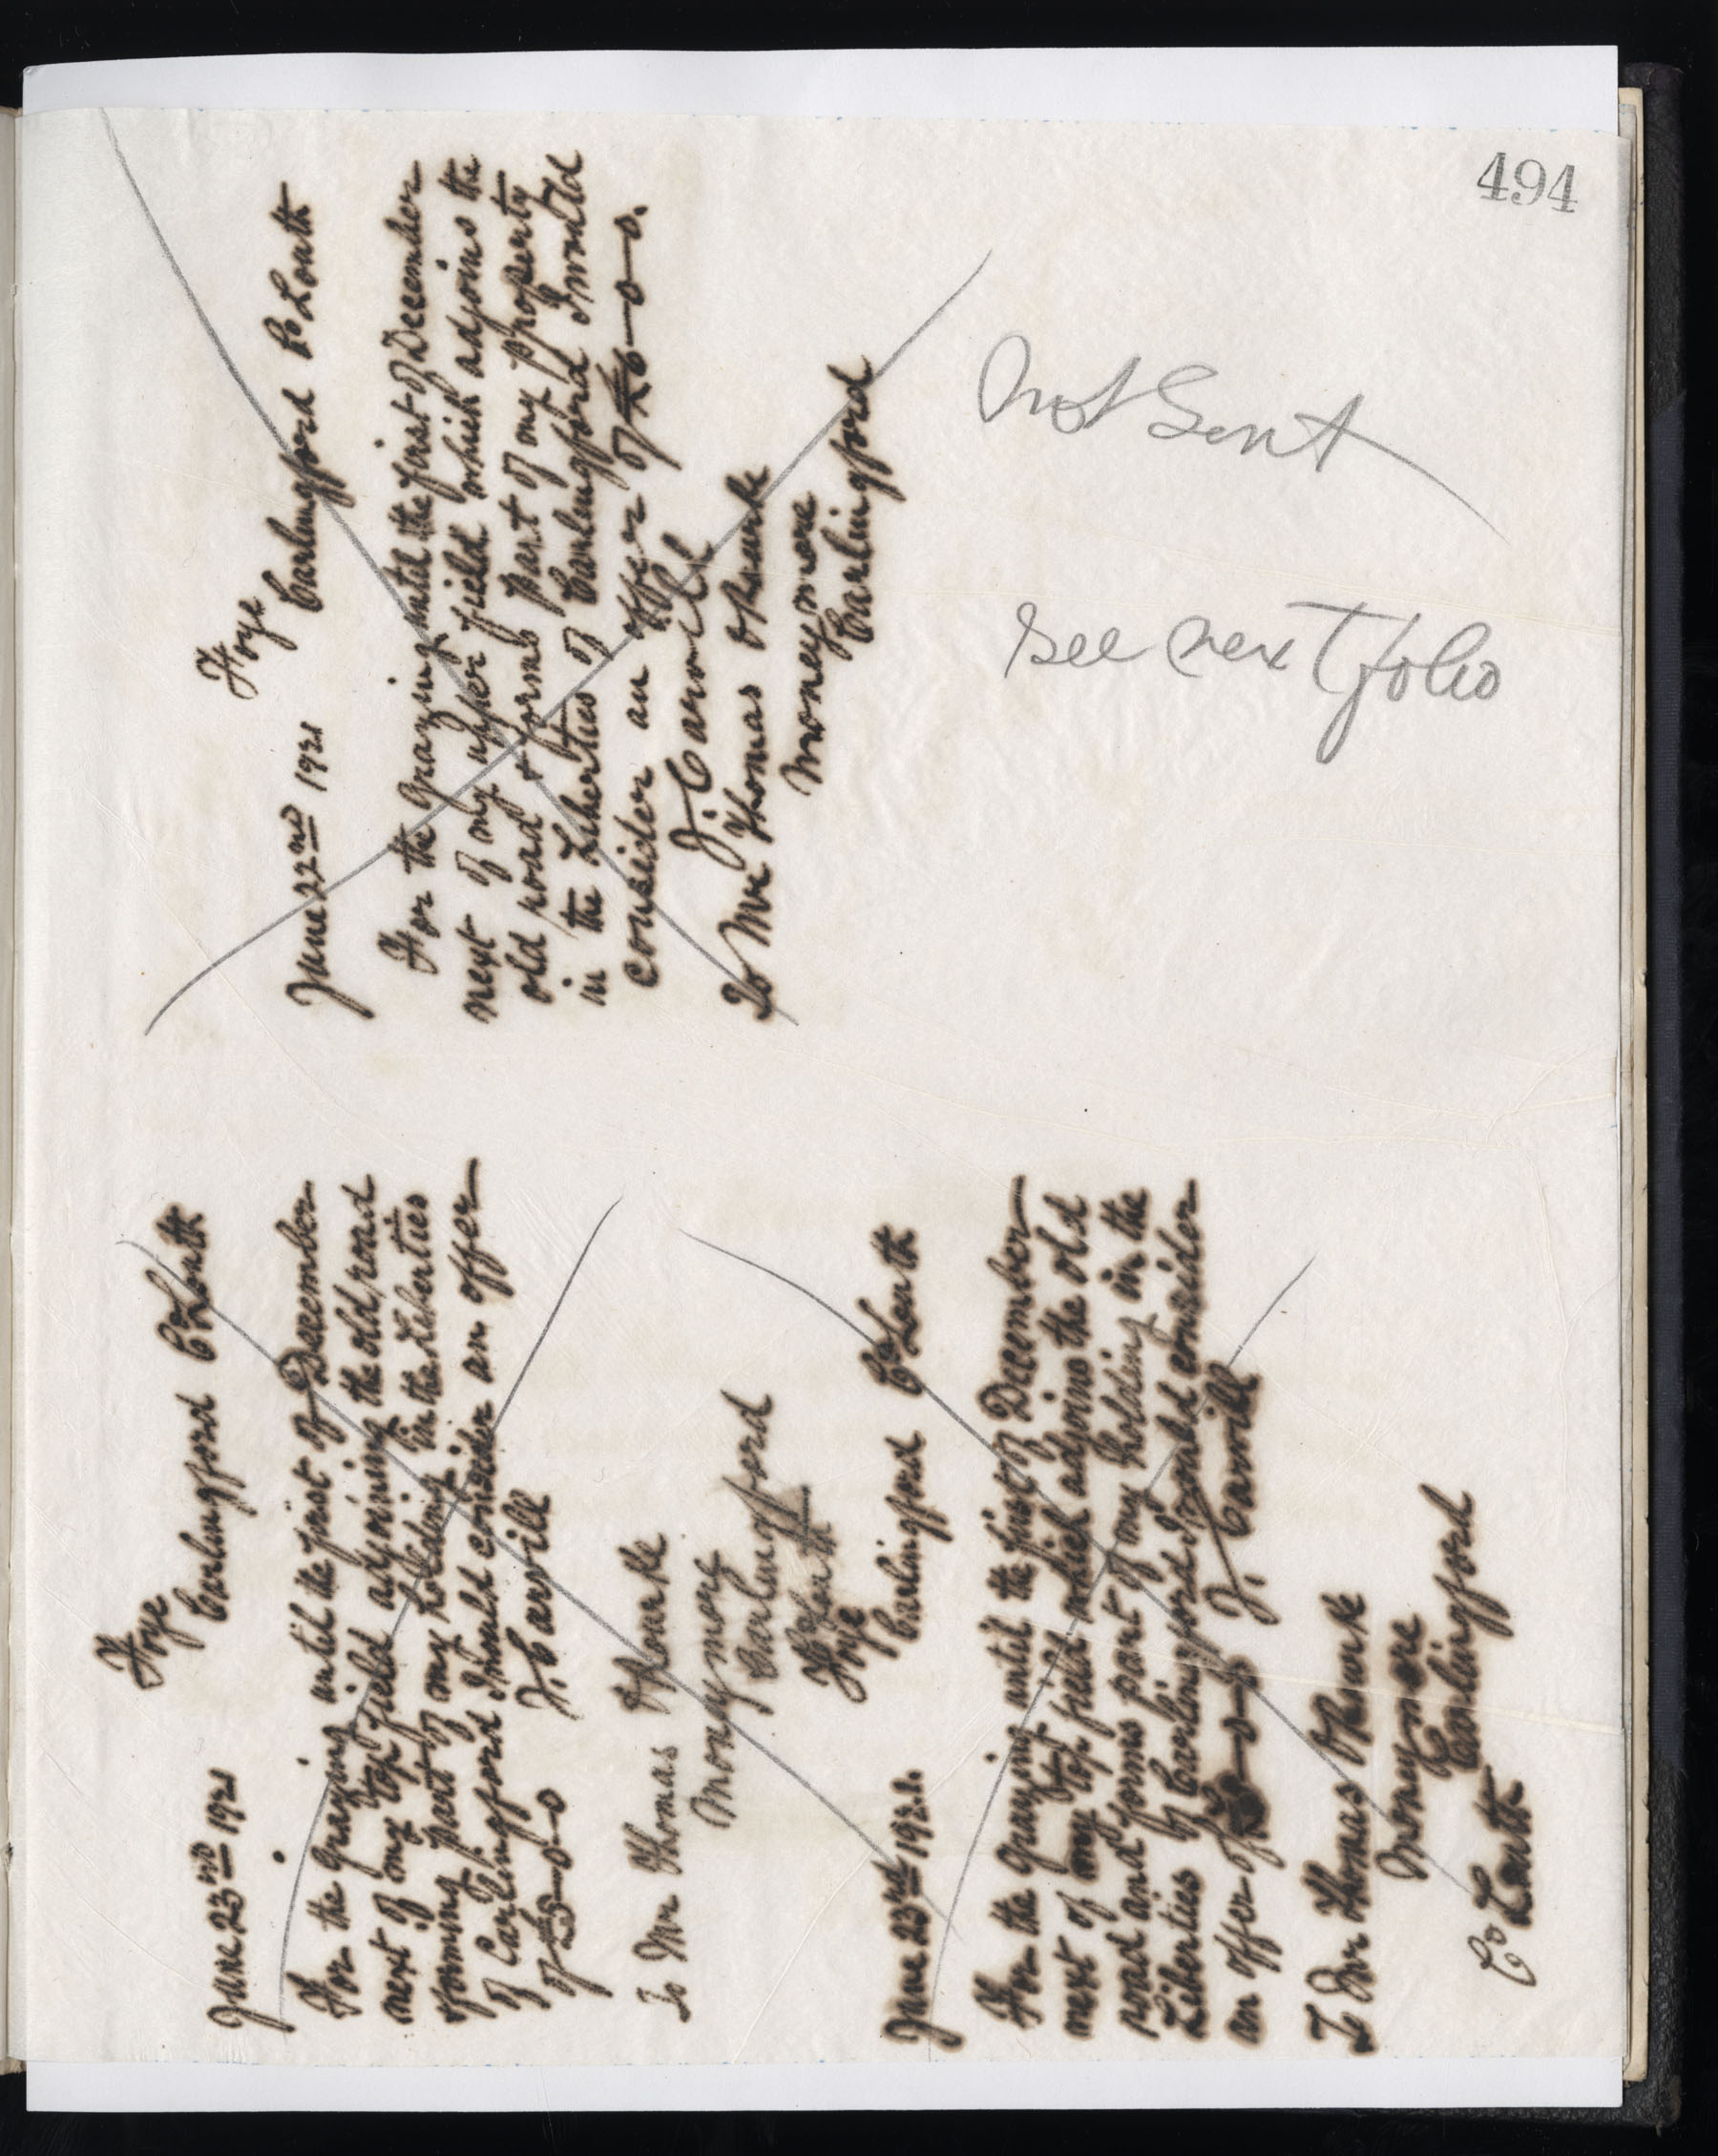 494
Foye
Carlingford Co Louth
June 22nd 1921
For the grazing until the first of December
next of my upper field which adjoins the
old road & forms part of my property
in the Liberties of Carlingford I would
consider an offer of £6-0-0.
J. Carvill
To Mr Thomas ORourke
Moneymore
Carlingford
Not Sent
See next folio
Foye
Carlingford Co Louth
June 23rd 1921
For the grazing until the first of December
next of my top field adjoining the old road
forming part of my holding in the Liberties
of Carlingford I would consider an offer
of £5-0-0 J. Carvill
To Mr Thomas ORourke
Moneymore
Carlingford
Co Louth
Foye
Carlingford Co Louth
June 23rd 1921.
For the grazing until the first of December
next of my top field which adjoins the old
road and forms part of my holding in the
Liberties of Carlingford I would consider
an offer of -0-0 J. Carvill
To Mr Thomas ORourke
Moneymore
Carlingford
Co Louth